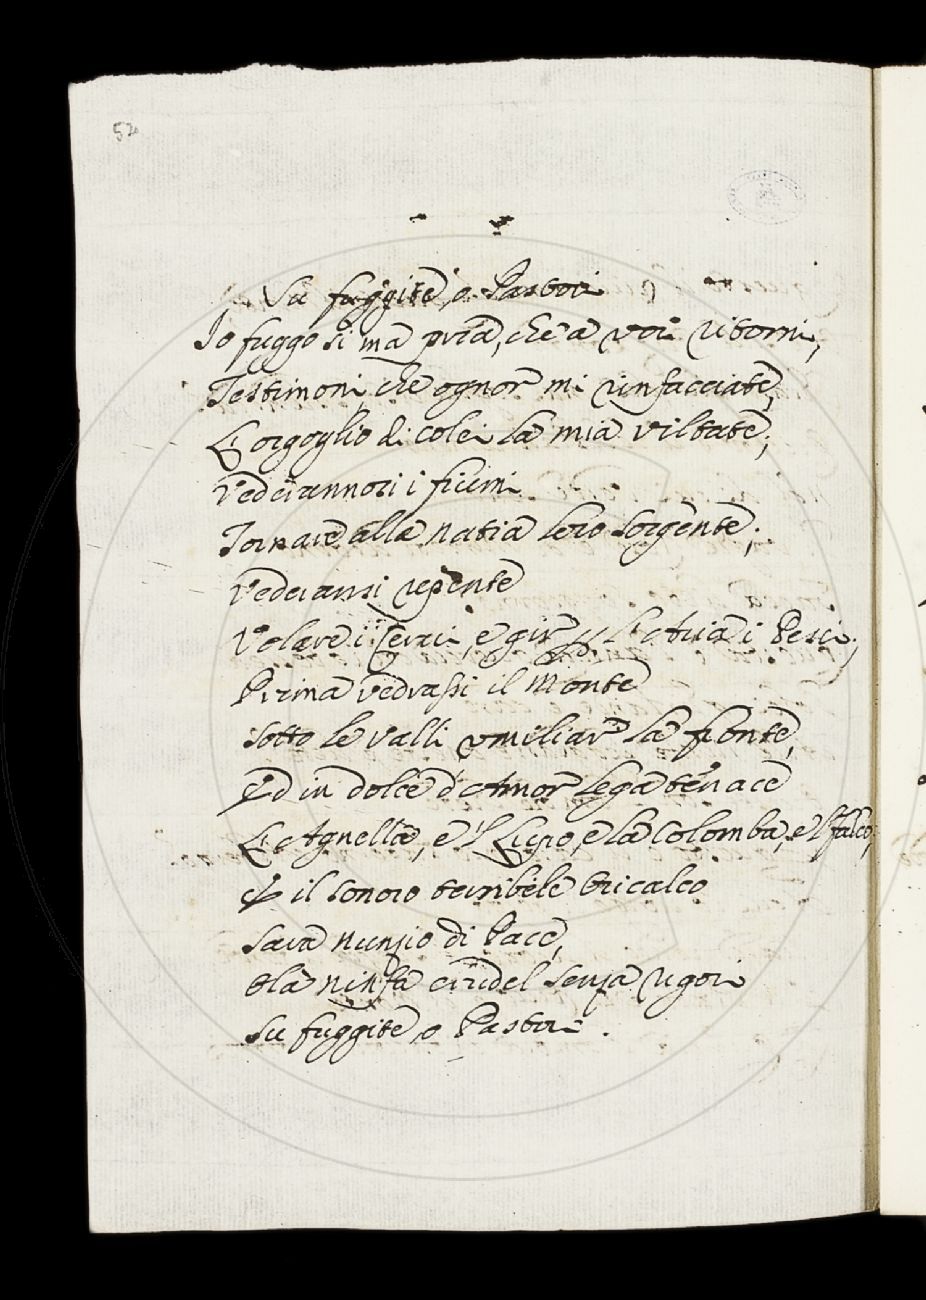 52
Su fuggite, o Pastori
Io fuggo sì ma pria, che a voi ritorni,
Testimoni, che ognor mi rinfacciate,
L'orgoglio di colei la mia viltate;
Vederannosi i fiumi
Tornare alla natia loro sorgente;
Vederansi repente
Volare i Cervi, e gir per l'Aria i Pesci;
Prima vedrassi il Monte
Sotto le valli umiliar la fronte,
Ed in dolce d'Amor lega tenace
L'Agnella, e 'l Lupo, e la Colomba, e 'l falco,
E il sonoro terribele oricalco
Sarà nunzio di Pace,
la ninfa crudel senza rigori
Su fuggite o Pastori.